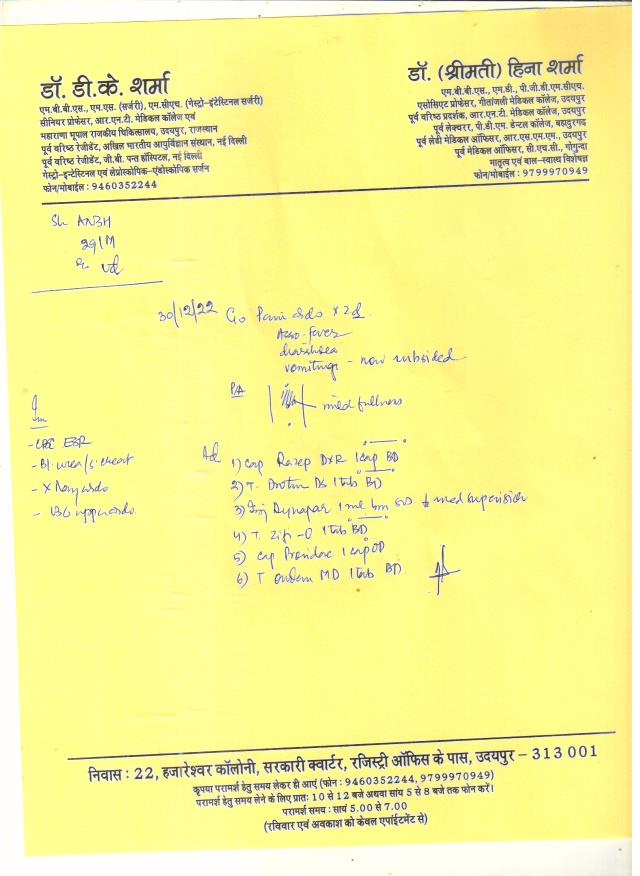 डॉ. डी.के. शर्मा
एम.बी.बी.एस., एम.एस. (सर्जरी), एम.सीएच. (गेस्ट्रो-इंटेस्टिनल सर्जरी)
सीनियर प्रोफेसर, आर.एन.टी. मेडिकल कॉलेज एवं
महाराणा भूपाल राजकीय चिकित्सालय, उदयपुर, राजस्थान
पूर्व वरिष्ठ रेजीडेंट, अखिल भारतीय आयुर्विज्ञान संस्थान, नई दिल्ली
पूर्व वरिष्ठ रेजीडेंट, जी.बी. पन्त हॉस्पिटल, नई दिल्ली
गेस्ट्रो-इन्टेस्टिनल एवं लेप्रोस्कोपिक-एंडोस्कोपिक सर्जन
फोन/मोबाईल : 9460352244
डॉ. (श्रीमती) हिना शर्मा
एम.बी.बी.एस., एम.डी., पी.जी.डी.एम.सीएच.
एसोसिएट प्रोफेसर, गीतांजली मेडिकल कॉलेज, उदयपुर
पूर्व वरिष्ठ प्रदर्शक, आर.एन.टी. मेडिकल कॉलेज, उदयपुर
पूर्व लेक्चरर, पी.डी.एम. डेन्टल कॉलेज, बहादुरगढ़
पूर्व लेडी मेडिकल ऑफिसर, आर.एस.एम.एम., उदयपुर
पूर्व मेडिकल ऑफिसर, सी.एच.सी., गोगुन्दा
मातृत्व एवं बाल-स्वास्थ्य विशेषज्ञ
फोन/मोबाईल : 9799970949
29/M
30/12/22 C/o Pain abdo x 2d
Asso - fever
diarrhoea
vomitings - now subsided
PA
mild fullness
- CBC ESR
- Bl. urea/s. creat
- X Ray abdo
- USG upper abdo
Ad
1) cap Razep DXR 1 cap BD
2) T. Drotin DS 1 tab BD
3) Inj Dynapar 1 ml Im SOS med supervision
4) T. Zifi-O 1 tab BD
5) Cap 1 cap OD
6) T Ondem MD 1 tab BD
निवास : 22, हजारेश्वर कॉलोनी, सरकारी क्वार्टर, रजिस्ट्री ऑफिस के पास, उदयपुर - 313 001
कृपया परामर्श हेतु समय लेकर ही आएं (फोन : 9460352244, 9799970949)
परामर्श हेतु समय लेने के लिए प्रातः 10 से 12 बजे अथवा सांय 5 से 8 बजे तक फोन करें।
परामर्श समय : सायं 5.00 से 7.00
(रविवार एवं अवकाश को केवल एपॉईंटमेंट से)